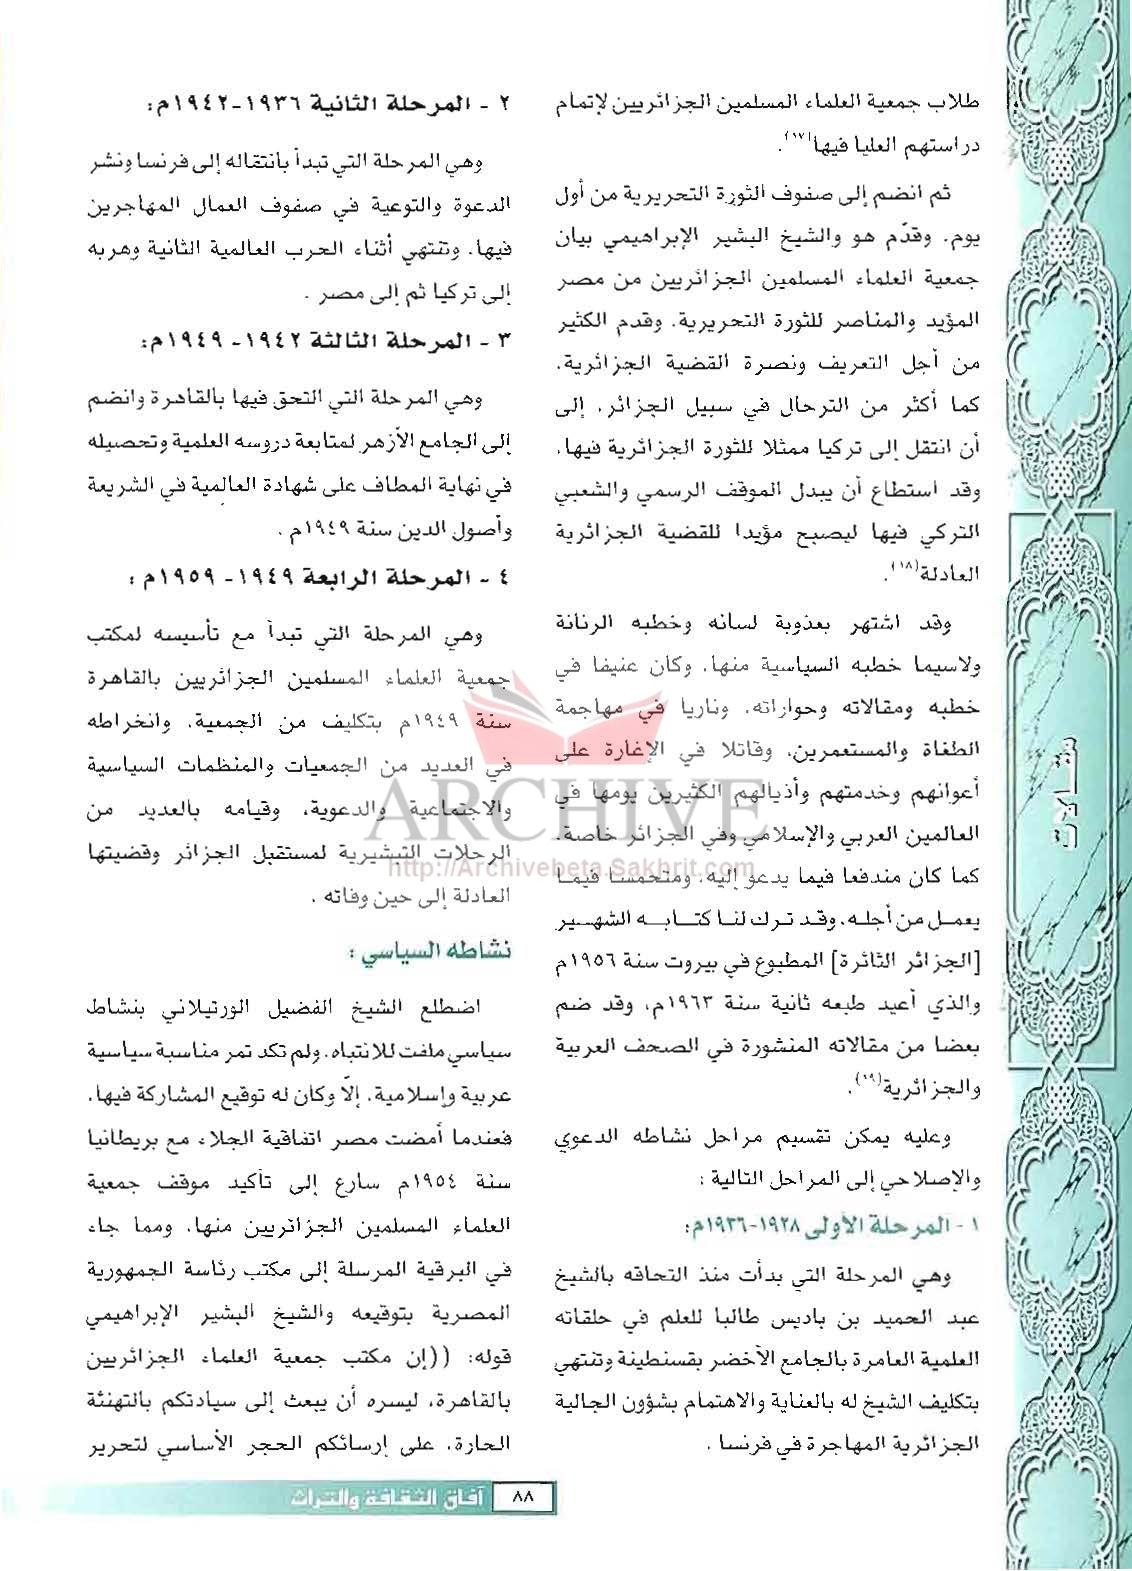 طلاب جمعية العلماء المسلمين الجزائريين لإتمام
دراستهم العليا فيها(١٧).
ثم انضم إلى صفوف الثورة التحريرية من أول
يوم، وقدّم هو والشيخ البشير الإبراهيمي بيان
جمعية العلماء المسلمين الجزائريين من مصر
المؤيد والمناصر للثورة التحريرية، وقدم الكثير
من أجل التعريف ونصرة القضية الجزائرية،
كما أكثر من الترحال في سبيل الجزائر، إلى
أن انتقل إلى تركيا ممثلا للثورة الجزائرية فيها،
وقد استطاع أن يبدل الموقف الرسمي والشعبي
التركي فيها ليصبح مؤيدا للقضية الجزائرية
العادلة(١٨).
وقد اشتهر بعذوبة لسانه وخطبه الرنانة
ولاسيما خطبه السياسية منها، وكان عنيفا في
خطبه ومقالاته وحواراته، وناريا في مهاجمة
الطغاة والمستعمرين، وقاتلا في الإغارة على
أعوانهم وخدمتهم وأذيالهم الكثيرين يومها في
العالمين العربي والإسلامي وفي الجزائر خاصة،
كما كان مندفعا فيما يدعو إليه، ومتحمسا فيما
يعمل من أجله، وقد ترك لنا كتابه الشهير
[الجزائر الثائرة] المطبوع في بيروت سنة ١٩٥٦م
والذي أعيد طبعه ثانية سنة ١٩٦٣م، وقد ضم
بعضا من مقالاته المنشورة في الصحف العربية
والجزائرية(١٩).
وعليه يمكن تقسيم مراحل نشاطه الدعوي
والإصلاحي إلى المراحل التالية :
١ - المرحلة الأولى ١٩٢٨-١٩٣٦م:
وهي المرحلة التي بدأت منذ التحاقه بالشيخ
عبد الحميد بن باديس طالبا للعلم في حلقاته
العلمية العامرة بالجامع الأخضر بقسنطينة وتنتهي
بتكليف الشيخ له بالعناية والاهتمام بشؤون الجالية
الجزائرية المهاجرة في فرنسا .
٢ - المرحلة الثانية ١٩٣٦-١٩٤٢م:
وهي المرحلة التي تبدأ بانتقاله إلى فرنسا ونشر
الدعوة والتوعية في صفوف العمال المهاجرين
فيها، وتنتهي أثناء الحرب العالمية الثانية وهربه
إلى تركيا ثم إلى مصر .
٣ - المرحلة الثالثة ١٩٤٢- ١٩٤٩م:
وهي المرحلة التي التحق فيها بالقاهرة وانضم
إلى الجامع الأزهر لمتابعة دروسه العلمية وتحصيله
في نهاية المطاف على شهادة العالمية في الشريعة
وأصول الدين سنة ١٩٤٩م .
٤ - المرحلة الرابعة ١٩٤٩- ١٩٥٩م :
وهي المرحلة التي تبدأ مع تأسيسه لمكتب
جمعية العلماء المسلمين الجزائريين بالقاهرة
سنة ١٩٤٩م بتكليف من الجمعية، وانخراطه
في العديد من الجمعيات والمنظمات السياسية
والاجتماعية والدعوية، وقيامه بالعديد من
الرحلات التبشيرية لمستقبل الجزائر وقضيتها
العادلة إلى حين وفاته .
نشاطه السياسي :
اضطلع الشيخ الفضيل الورتيلاني بنشاط
سياسي ملفت للانتباه، ولم تكد تمر مناسبة سياسية
عربية وإسلامية، إلّا وكان له توقيع المشاركة فيها،
فعندما أمضت مصر اتفاقية الجلاء مع بريطانيا
سنة ١٩٥٤م سارع إلى تأكيد موقف جمعية
العلماء المسلمين الجزائريين منها، ومما جاء
في البرقية المرسلة إلى مكتب رئاسة الجمهورية
المصرية بتوقيعه والشيخ البشير الإبراهيمي
قوله: ((إن مكتب جمعية العلماء الجزائريين
بالقاهرة، ليسره أن يبعث إلى سيادتكم بالتهنئة
الحارة، على إرسائكم الحجر الأساسي لتحرير
مقالات
ARCHIVE
http://Archivebeta.Sakhrit.com
٨٨ آفاق الثقافة والتراث